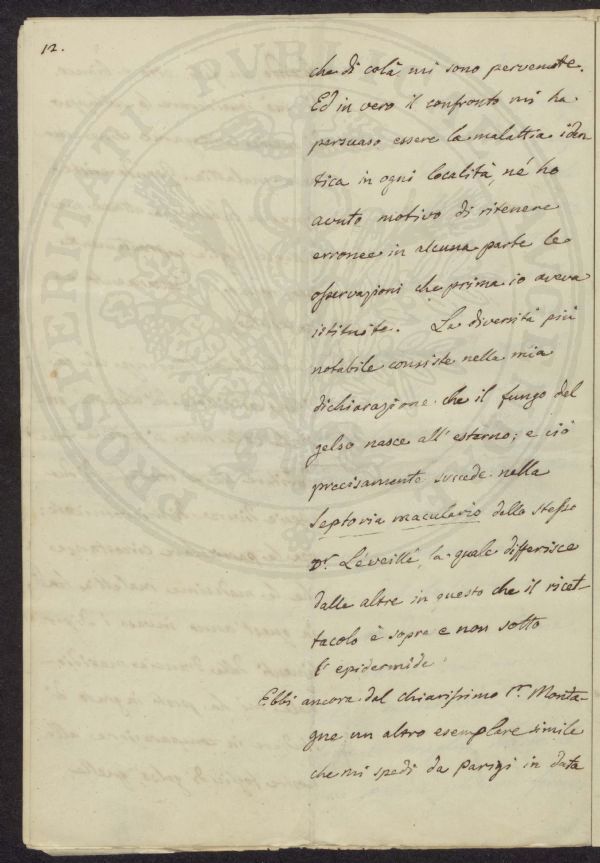 12.
che di colà mi sono pervenute.
Ed in vero il confronto mi ha
persuaso essere la malattia iden
tica in ogni località, né ho
avuto motivo di ritenere
erronee in alcuna parte le
osservazioni che prima io aveva
istituite. La diversità più
notabile consiste nella mia
dichiarazione che il fungo del
gelso nasce all'esterno; e ciò
precisamente succede nella
Septoria macularis dello stesso
Dr. Léveillé, la quale differisce
dalle altre in questo che il ricet-
tacolo è sopra e non sotto
l'epidermide.
Ebbi ancora dal chiarissimo Sr. Monta-
gne un altro esemplare simile
che mi spedì da Parigi in data
PROSPERITATI PVBLICAE